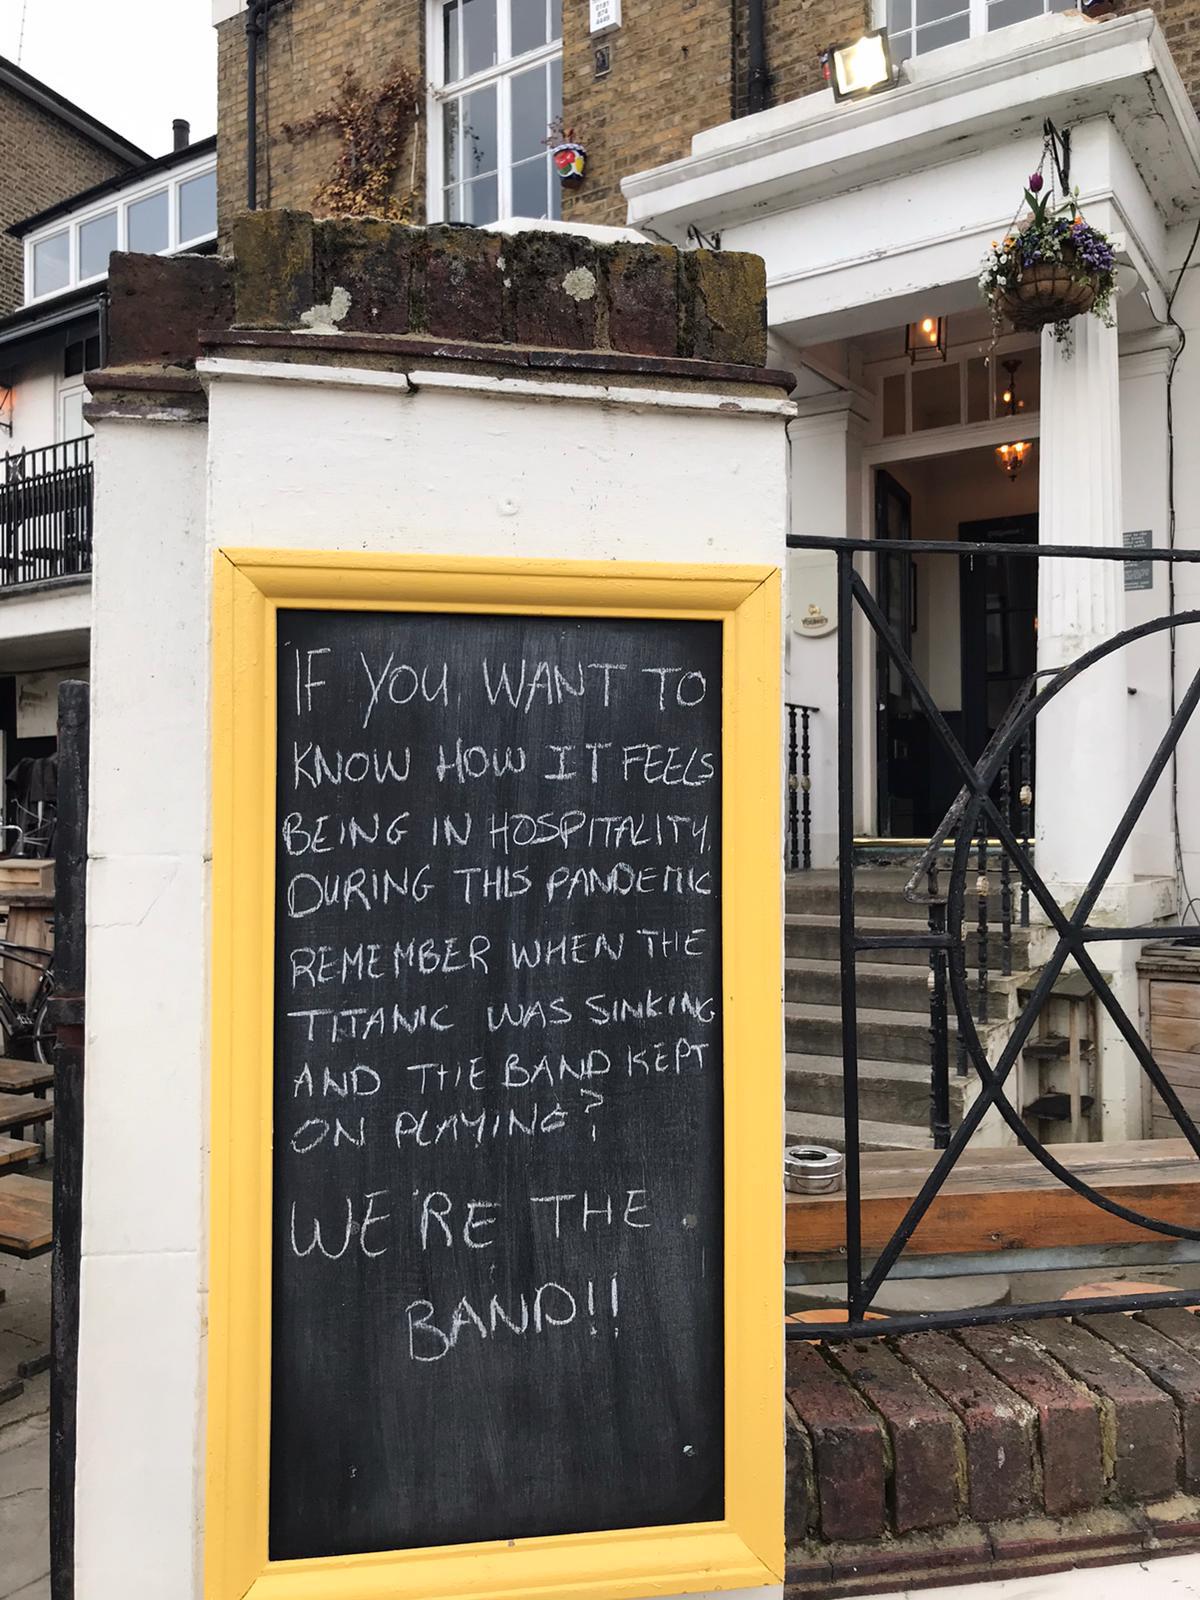 IF YOU WANT TO
KNOW HOW IT FEELS
BEING IN HOSPITALITY,
DURING THIS PANDEMIC
REMEMBER WHEN THE
TITANIC WAS SINKING
AND THE BAND KEPT
ON PLAYING?
WE'RE THE
BAND!!